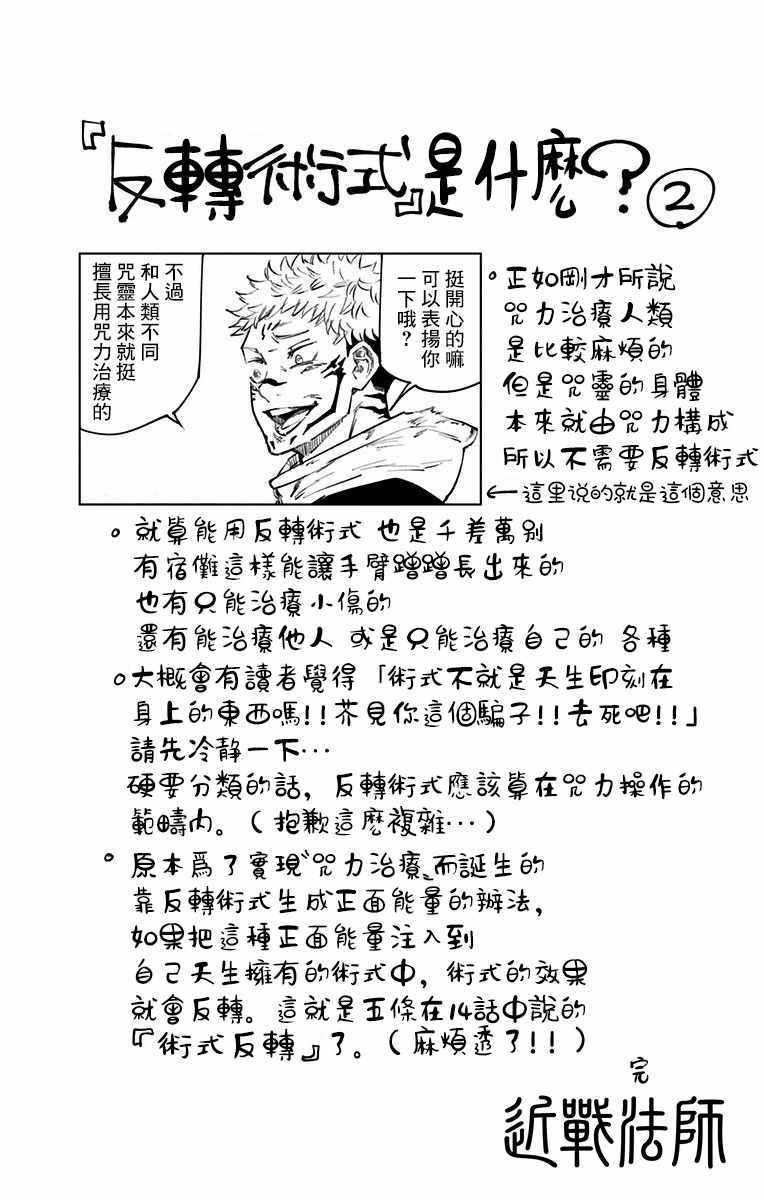 『反轉術式』是什麼？②
挺開心的嘛
可以表揚你
一下哦？
不過
和人類不同
咒靈本來就挺
擅長用咒力治療的
。正如剛才所說
咒力治療人類
是比較麻煩的
但是咒靈的身體
本來就由咒力構成
所以不需要反轉術式
←這里说的就是這個意思
。就算能用反轉術式 也是千差萬別
有宿儺這樣能讓手臂蹭蹭長出來的
也有只能治療小傷的
還有能治療他人 或是只能治療自己的 各種
。大概會有讀者覺得「術式不就是天生印刻在
身上的東西嗎!!芥見你這個騙子!!去死吧!!」
請先冷静一下…
硬要分類的話，反轉術式應該算在咒力操作的
範疇内。（抱歉這麽複雜…）
。原本爲了實現〝咒力治療〟而誕生的
靠反轉術式生成正面能量的辦法，
如果把這種正面能量注入到
自己天生擁有的術式中，術式的效果
就會反轉。這就是五條在14話中說的
『術式反轉』了。（麻煩透了!!）
完
近戰法師